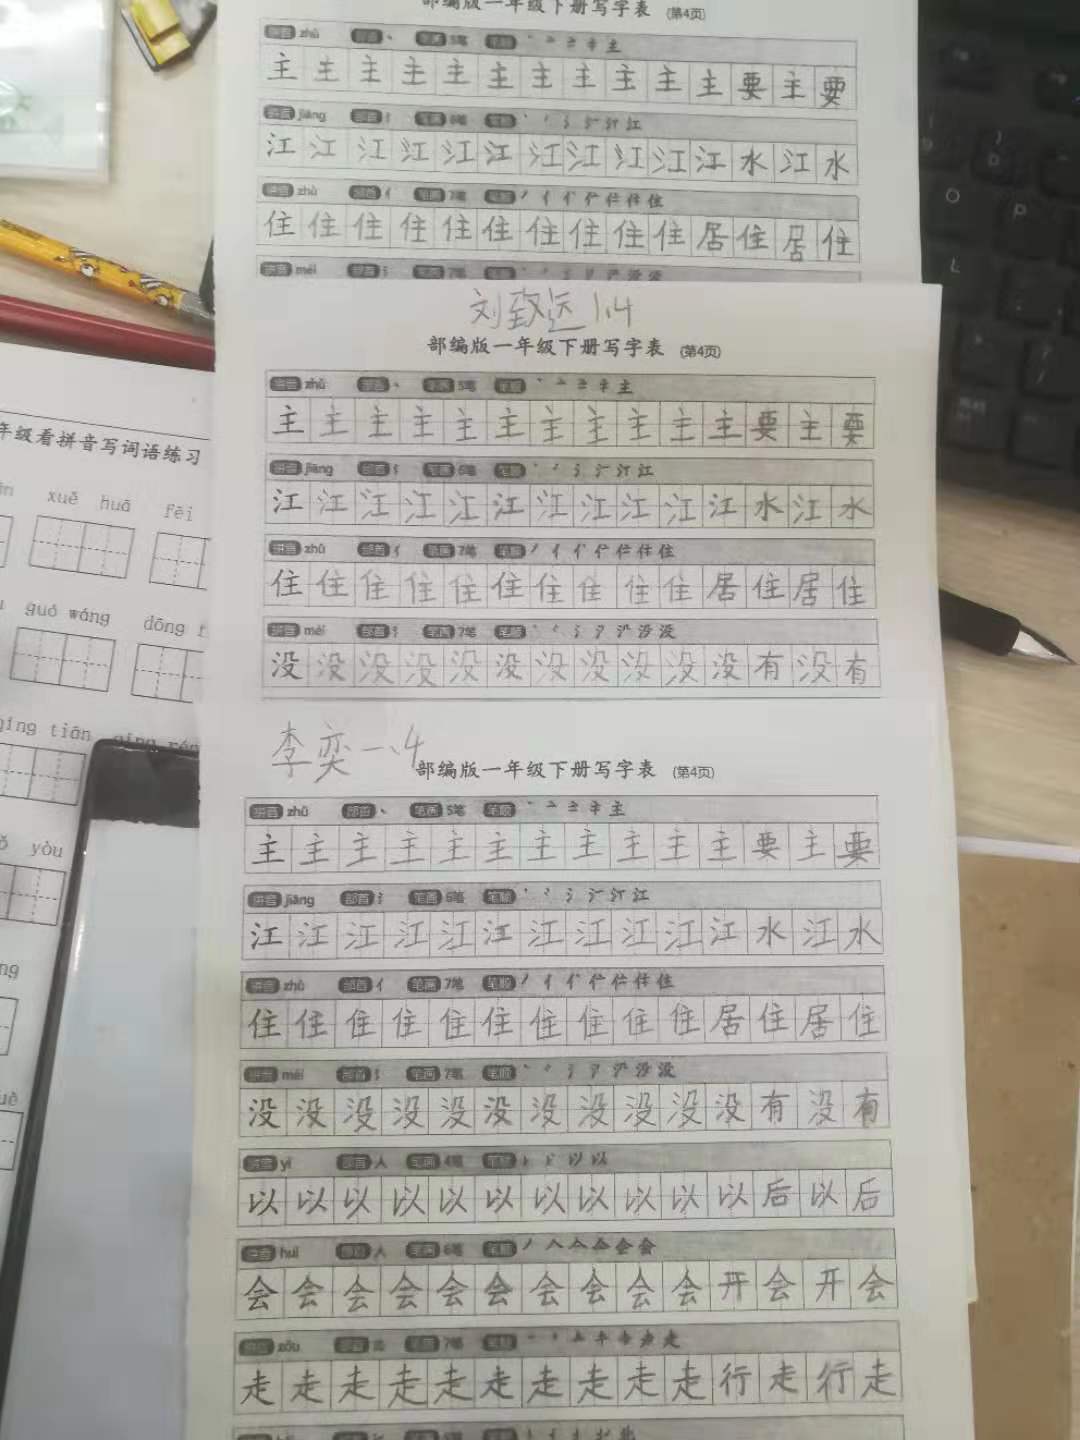 部编版一年级下册写字表 (第4页)
拼音 zhǔ 部首 丶 笔画 5笔 笔顺
主 主 主 主 主 主 主 主 主 主 主 要 主 要
拼音 jiāng 部首 氵 笔画 6笔 笔顺
江 江 江 江 江 江 江 江 江 江 江 水 江 水
拼音 zhù 部首 亻 笔画 7笔 笔顺
住 住 住 住 住 住 住 住 住 住 居 住 居 住
拼音 méi 部首 氵 笔画 7笔 笔顺
刘致远 1.4
部编版一年级下册写字表 (第4页)
拼音 zhǔ 部首 丶 笔画 5笔 笔顺
主 主 主 主 主 主 主 主 主 主 主 要 主 要
拼音 jiāng 部首 氵 笔画 6笔 笔顺
江 江 江 江 江 江 江 江 江 江 江 水 江 水
拼音 zhù 部首 亻 笔画 7笔 笔顺
住 住 住 住 住 住 住 住 住 住 居 住 居 住
拼音 méi 部首 氵 笔画 7笔 笔顺
没 没 没 没 没 没 没 没 没 没 没 有 没 有
李奕 一、4
部编版一年级下册写字表 (第4页)
拼音 zhǔ 部首 丶 笔画 5笔 笔顺
主 主 主 主 主 主 主 主 主 主 主 要 主 要
拼音 jiāng 部首 氵 笔画 6笔 笔顺
江 江 江 江 江 江 江 江 江 江 江 水 江 水
拼音 zhù 部首 亻 笔画 7笔 笔顺
住 住 住 住 住 住 住 住 住 住 居 住 居 住
拼音 méi 部首 氵 笔画 7笔 笔顺
没 没 没 没 没 没 没 没 没 没 没 有 没 有
拼音 yǐ 部首 人 笔画 4笔 笔顺
以 以 以 以 以 以 以 以 以 以 以 后 以 后
拼音 huì 部首 人 笔画 6笔 笔顺
会 会 会 会 会 会 会 会 会 会 开 会 开 会
拼音 zǒu 部首 走 笔画 7笔 笔顺
走 走 走 走 走 走 走 走 走 走 行 走 行 走
年级看拼音写词语练习
xuě huā fēi
guó wáng dōng
qíng tiān
yòu